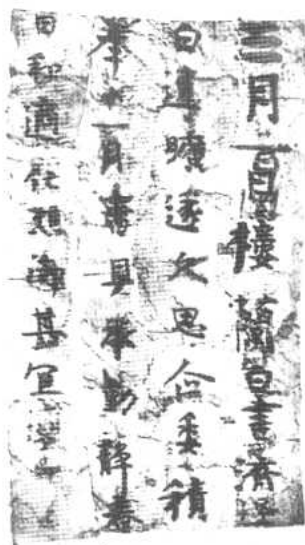 三月一日樓蘭白書濟逞
白違曠遂久思企委積
奉十一月書具承動靜春
日和適伏想